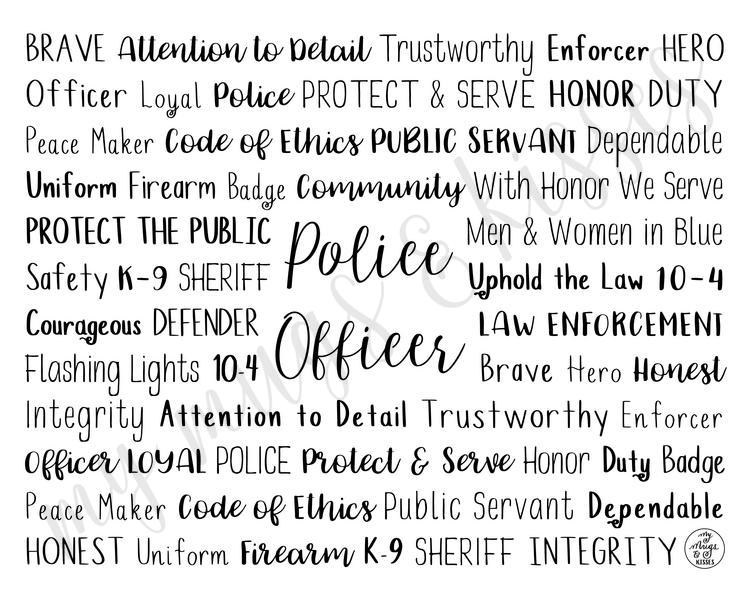 BRAVE Attention to Detail Trustworthy Enforcer HERO
Officer Loyal Police PROTECT & SERVE HONOR DUTY
Peace Maker Code of Ethics PUBLIC SERVANT Dependable
Uniform Firearm Badge Community With Honor We Serve
PROTECT THE PUBLIC Police Men & Women in Blue
Safety K-9 SHERIFF Uphold the Law 10-4
Courageous DEFENDER Officer LAW ENFORCEMENT
Flashing Lights 10-4 Brave Hero Honest
Integrity Attention to Detail Trustworthy Enforcer
Officer LOYAL POLICE Protect & Serve Honor Duty Badge
Peace Maker Code of Ethics Public Servant Dependable
HONEST Uniform Firearm K-9 SHERIFF INTEGRITY
my
Mugs
&
KISSES
my mugs & kisses